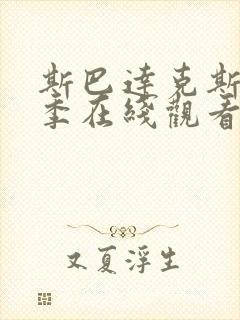 斯巴達克斯
季在綫觀看
又夏浮生